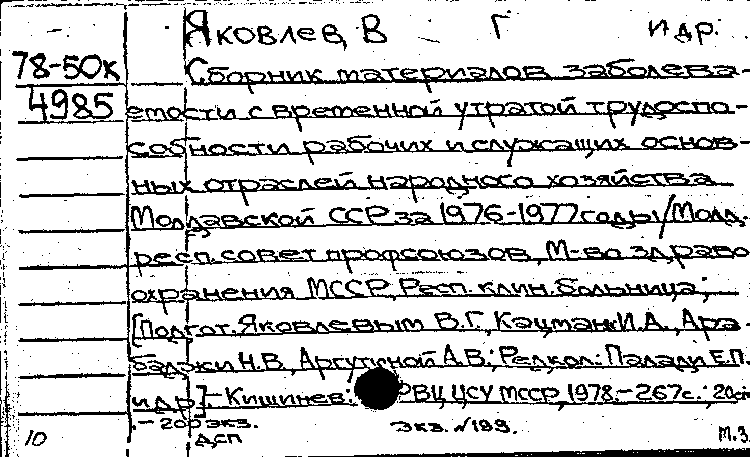 Яковлев, В Г и др.
78-50к Сборник материалов заболева-
4985 емости с временной утратой трудоспо-
собности рабочих и служащих основ-
ных отраслей народного хозяйства
Молдавской ССР за 1976-1977 годы / Молд.
респ. совет профсоюзов, М-во здраво
охранения МССР, Респ. клин. больница;
[Подгот. Яковлевым В.Г., Кацман И.А., Ара
баджи Н.В., Аргутиной А.В.; Редкол.: Палади Е.П.
и др]. - Кишинев: РВЦ ЦСУ МССР, 1978. - 267с.; 20см
. - 200 экз. Экз. №199.
10 ДСП М.З.